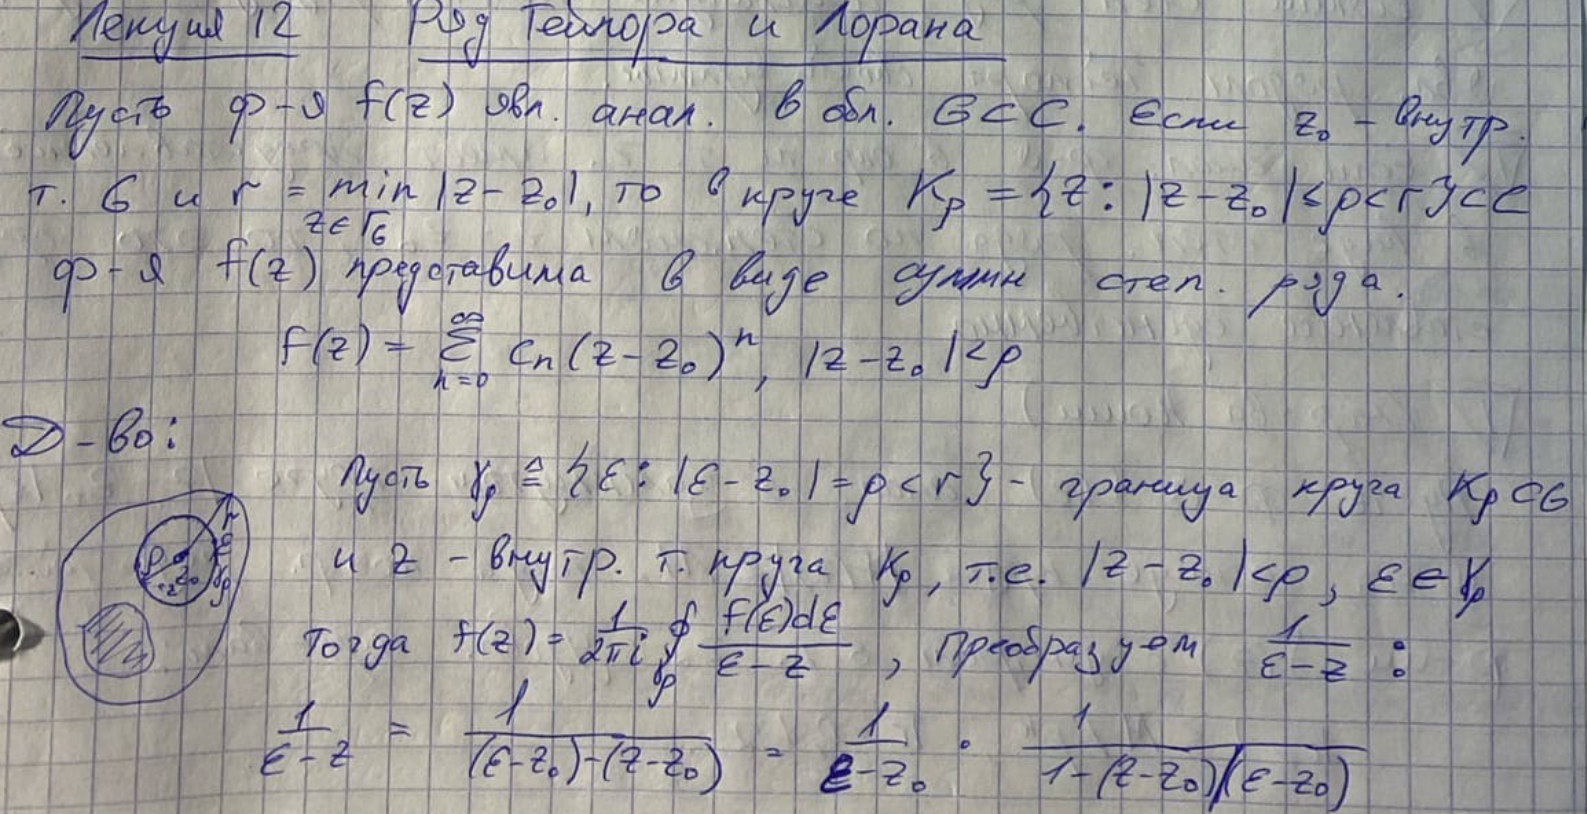 Лекция 12 Ряд Тейлора и Лорана
Пусть ф-я f(z) явл. анал. в обл. G⊂C. Если z₀ - внутр.
т. G и r = min |z-z₀|, то в круге Kρ = {z: |z-z₀|<ρ<r}⊂C
z∈Γ_G
ф-я f(z) представима в виде суммы степ. ряда.
f(z) = ∑_{n=0}^{∞} cₙ(z-z₀)ⁿ, |z-z₀|<ρ
Д-во:
Пусть γρ ≙ {ε: |ε-z₀|=ρ<r} - граница круга Kρ⊂G
и z - внутр. т. круга Kρ, т.е. |z-z₀|<ρ, ε∈γρ
Тогда f(z) = 1/2πi ∮_{γρ} f(ε)dε/ε-z, преобразуем 1/ε-z :
1/ε-z = 1/(ε-z₀)-(z-z₀) = 1/ε-z₀ · 1/1-(z-z₀)/(ε-z₀)
r
ρ
z₀
z
ε
γρ